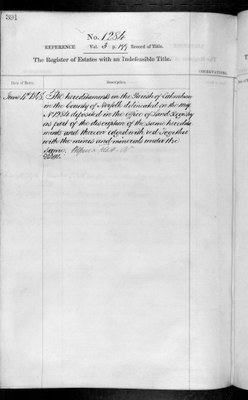 No. 1284
REFERENCE Vol. 3 p. 199 Record of Title.
The Register of Estates with an Indefeasible Title.
Date of Entry. Description. OBSERVATIONS.
June The hereditaments in the Parish of
in the County of Norfolk delineated on the Map
No 1284 deposited in the office of Land Registry
as part of the description of the same heredita
ments and thereon edged with red Together
with the mines and minerals under the
same